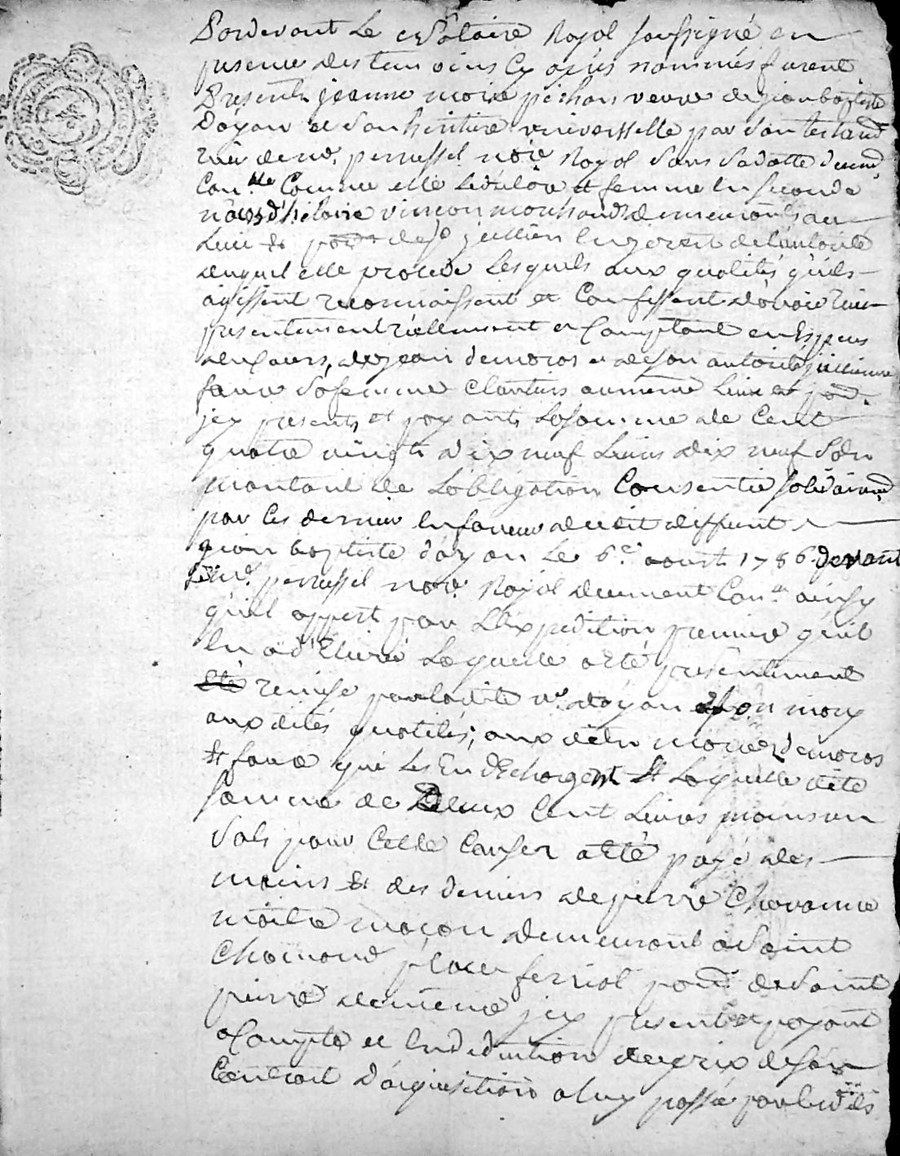 Pardevant Le Notaire Royal soussigné en
presence des temoins Cy après nommés furent
Presents jeanne marie pichon veuve de jean baptiste
Doyon et son heritiere universelle par son testam.t
reçu de me. perrussel no.re Royal sans datte dument
Con.llé Comme elle Le déclare et femme En seconde
nôces d'hilaire vincon marchand demeurants au
Lieu et par.sse de s.t jullien En jarest de l'autorité
duquel elle procède Lesquels aux qualités qu'ils
agissent reconnaissent et Confessent d'avoir reçu
presentement réellement et Comptant en Espèces
de Cours, de jean demoras et de son autorité jullienne
faure sa femme au meme Lieu et par.
jcy presents et payants La somme de Cent
quatre vingt dix neuf Livres dix neuf sols
montant de L'obligation Consentie solidairem.t
par Ces derniers En faveur dudit deffunt
jean baptiste doyon Le 6.e aout 1786 devant
led. me. perrussel no.re Royal duement Con.lé ainsy
qu'il appert par L'Expedition premiere qu'il
En a d'Elivré Laquelle a eté presentement
été remise par ladite v.e doyon et son mary
aux dites qualités, aux dits mariés demoras
et faure qui Les En dechargent et Laquelle dite
somme de Deux Cent Livres moins un
sols pour Celle Causer a eté payé des
mains et des deniers de pierre Chavanne
maitre maçon demeurant a Saint
Chamond place ferriol par. de Saint
pierre de meme jcy present et payant
a Compte et En deduction du prix de son
Contrait d'aquisition a luy passé par lesdits